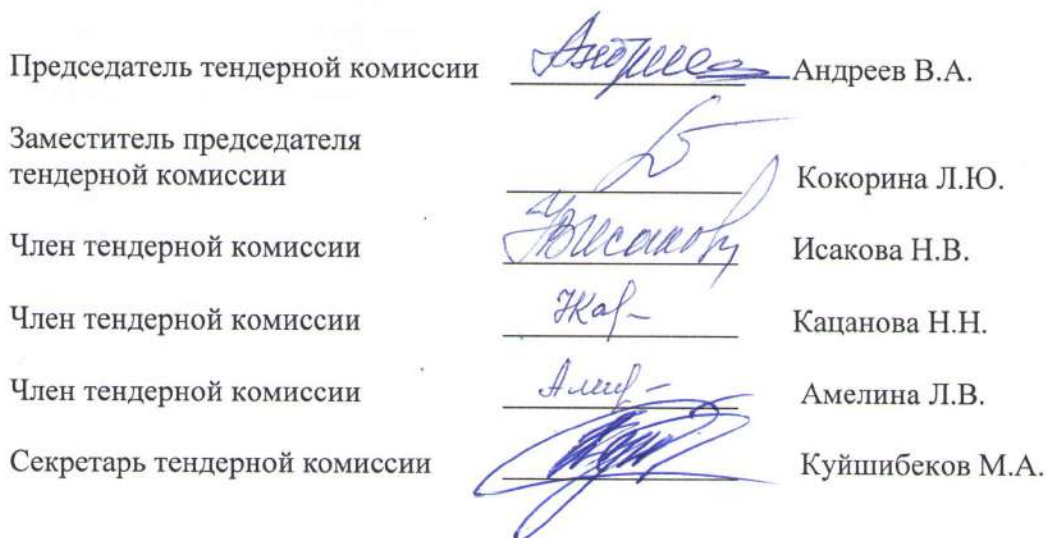 Председатель тендерной комиссии Андреев В.А.
Заместитель председателя
тендерной комиссии Кокорина Л.Ю.
Член тендерной комиссии Исакова Н.В.
Член тендерной комиссии Кацанова Н.Н.
Член тендерной комиссии Амелина Л.В.
Секретарь тендерной комиссии Куйшибеков М.А.